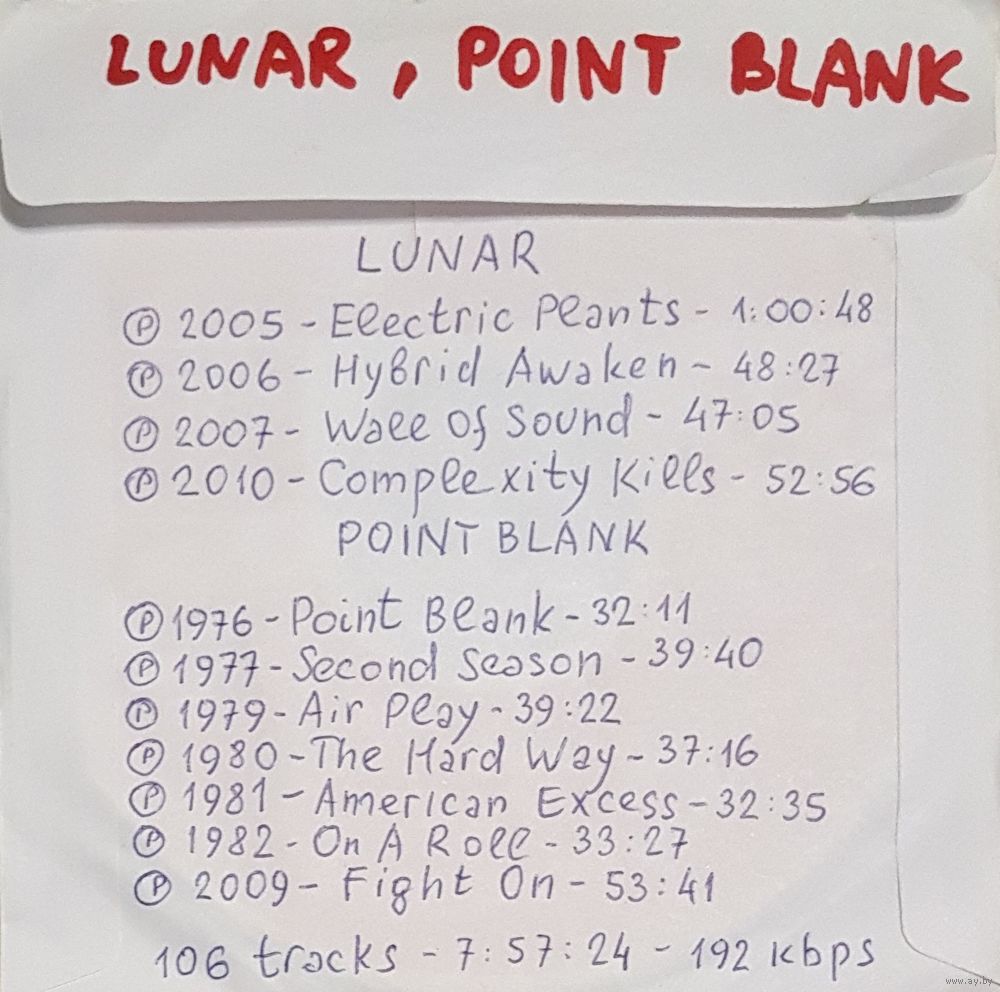 LUNAR, POINT BLANK
LUNAR
Ⓟ 2005 - Electric Plants - 1:00:48
Ⓟ 2006 - Hybrid Awaken - 48:27
Ⓟ 2007 - Wall Of Sound - 47:05
Ⓟ 2010 - Complexity Kills - 52:56
POINT BLANK
Ⓟ 1976 - Point Blank - 32:11
Ⓟ 1977 - Second Season - 39:40
Ⓟ 1979 - Air Play - 39:22
Ⓟ 1980 - The Hard Way - 37:16
Ⓟ 1981 - American Excess - 32:35
Ⓟ 1982 - On A Roll - 33:27
Ⓟ 2009 - Fight On - 53:41
106 tracks - 7:57:24 - 192 kbps
www.ay.by